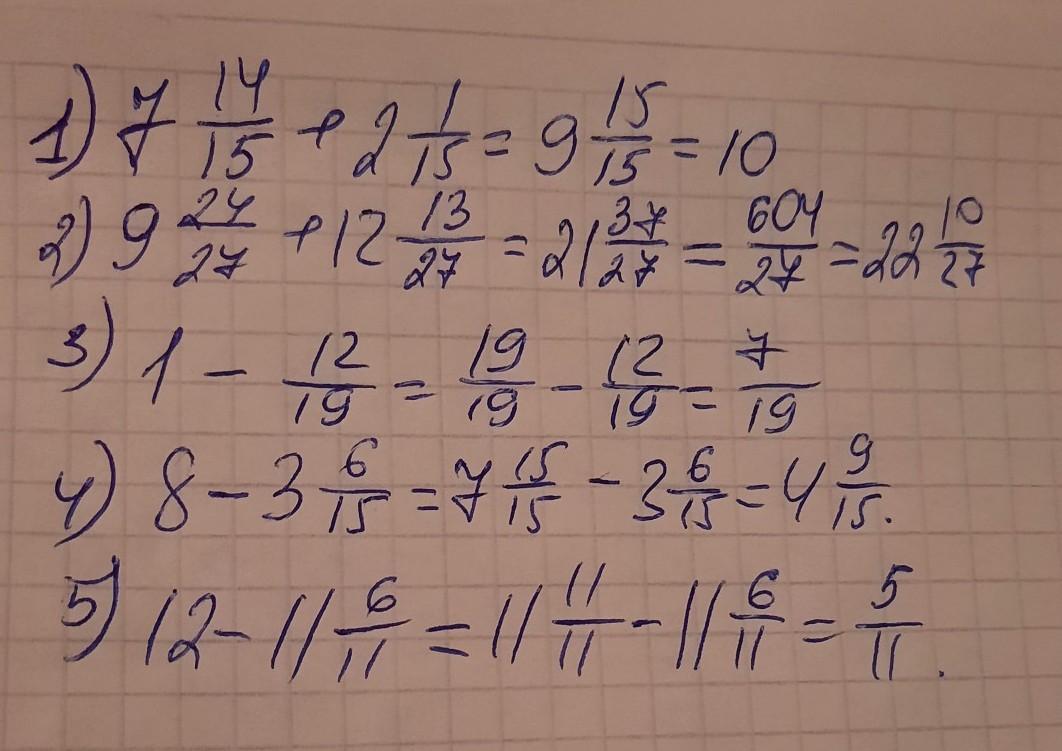 1) 7 14/15 + 2 1/15 = 9 15/15 = 10
2) 9 24/27 + 12 13/27 = 21 37/27 = 604/27 = 22 10/27
3) 1 - 12/19 = 19/19 - 12/19 = 7/19
4) 8 - 3 6/15 = 7 15/15 - 3 6/15 = 4 9/15.
5) 12 - 11 6/11 = 11 11/11 - 11 6/11 = 5/11.